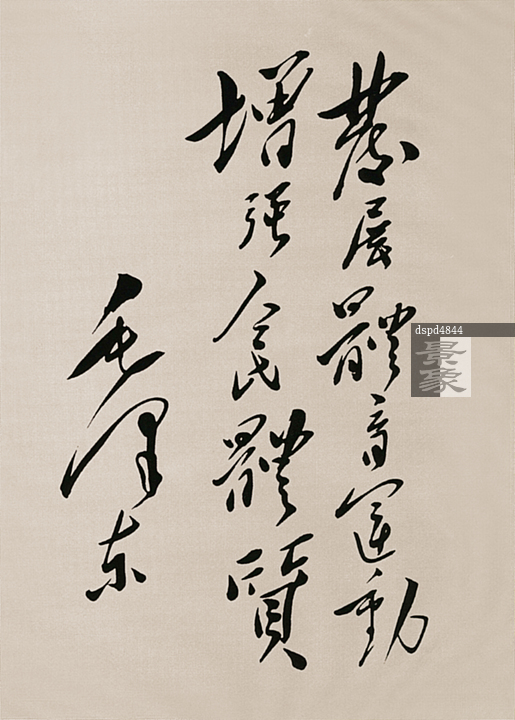 發展體育運動
增強人民體質
毛澤东
dspd4844
景象